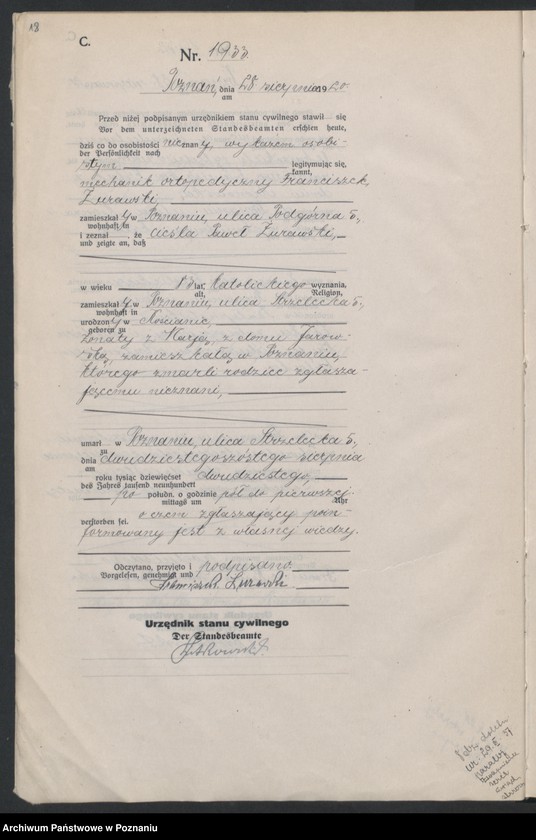 18
C.
Nr. 1933.
Poznań, dnia 28 sierpnia 1920
am
Przed niżej podpisanym urzędnikiem stanu cywilnego stawił się
Vor dem unterzeichneten Standesbeamten erschien heute,
dziś co do osobistości nieznany, wykazem osobi-
der Persönlichkeit nach
stym legitymując się,
kannt,
mechanik ortopedyczny Franciszek
Żurawski,
zamieszkał y w Poznaniu, ulica Podgórna 6.,
wohnhaft in
i zeznał, że cieśla Paweł Żurawski,
und zeigte an, daß
w wieku lat, katolickiego wyznania,
alt, Religion,
zamieszkał y w Poznaniu, ulica Strzelecka 5.,
wohnhaft in
urodzony w Kościanie,
geboren zu
żonaty z z domu
zamieszkałą w Poznaniu,
którego zmarli rodzice zgłasza-
jącemu nieznani,
umarł w Poznaniu, ulica Strzelecka 5.,
zu
dnia dwudziestegoszóstego sierpnia
am
roku tysiąc dziewięćset dwudziestego,
des Jahres tausend neunhundert
po połudn. o godzinie pół do pierwszej.
mittags um Uhr
o czem zgłaszający poin-
verstorben sei.
formowany jest z własnej wiedzy.
Odczytano, przyjęto i podpisano
Vorgelesen, genehmigt und
Franciszek Żurawski
Urzędnik stanu cywilnego
Der Standesbeamte
Archiwum Państwowe w Poznaniu